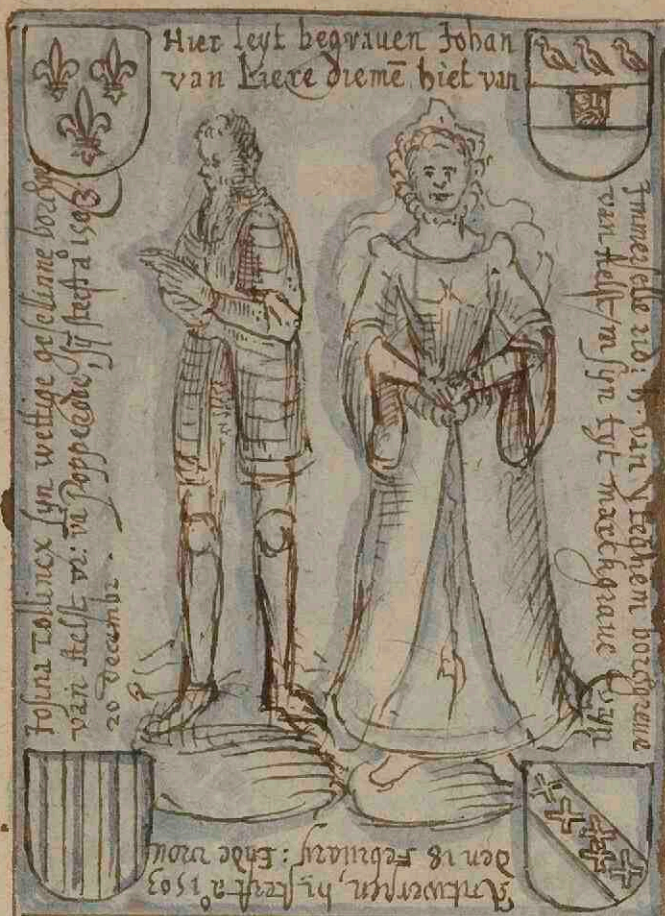 Hier leyt begrauen Johan
van Liere diemē hiet van
Immerselle rid: h. van Vrechem borchgreue
van Aelst in syn tyt marckgraue van
Antwerpen, hi sterft aº 1503
den 18 February: Ende vrou
Josina Tollincx syn wettige geselinne borchgr
van Aelst vr: vā Poppeode, sy sterft aº 1503
20 Decemb.